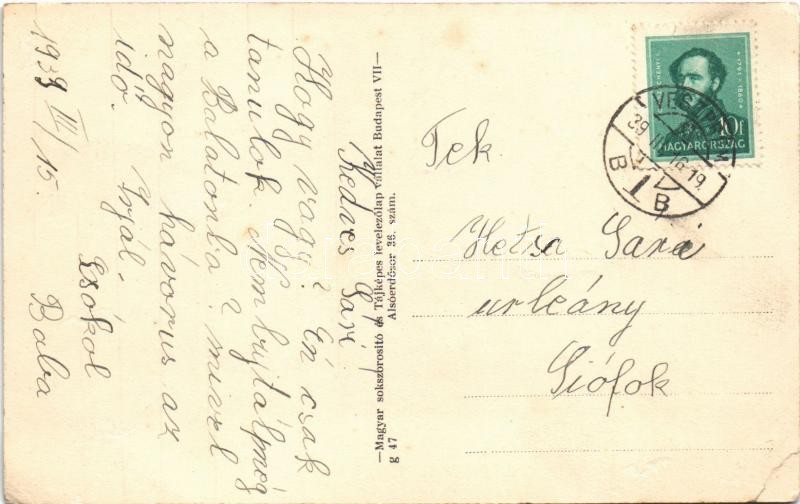 Kedves Sári!
Hogy vagy? Én csak
tanulok. Nem bujtál még
a Balatonba? mivel
nagyon háborus az
idő. Irjál.
Csókol
Baba
1939 III/15.
—Magyar sokszorosító és Tájképes levelezőlap vállalat Budapest VII—
Alsóerdősor 36. szám.
g 47
SZÉCHENYI I. 1791-1860
10f
MAGYARORSZÁG
VESZPRÉM
39 III 16. 19
B 1 B
Tek.
Hetsa Sári
urleány
Siófok